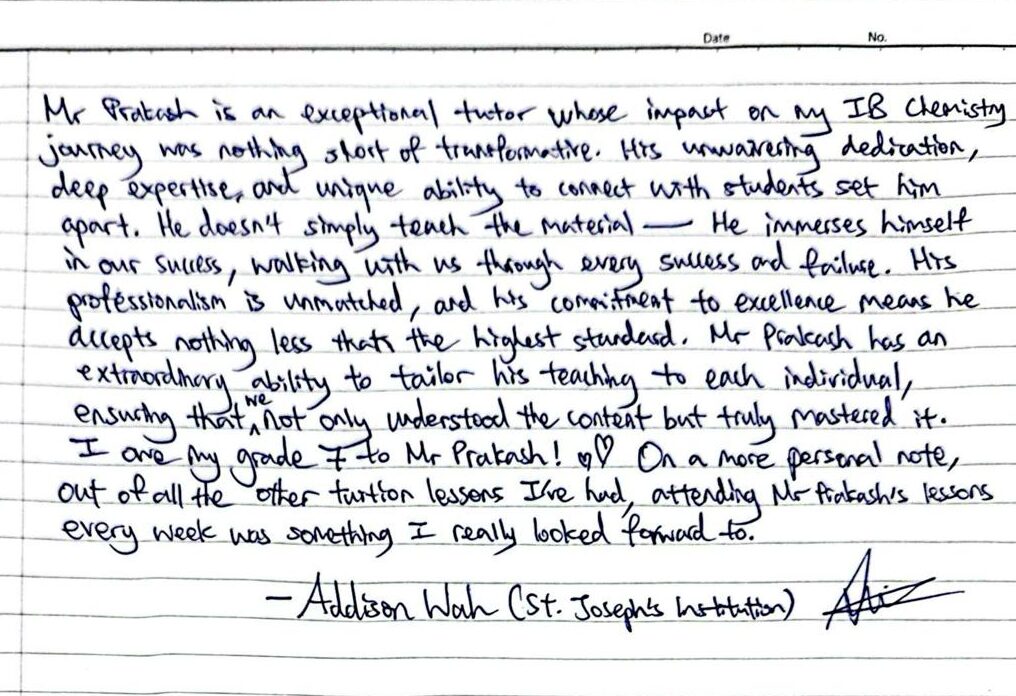 Date No.
Mr Prakash is an exceptional tutor whose impact on my IB Chemistry
journey was nothing short of transformative. His unwavering dedication,
deep expertise, and unique ability to connect with students set him
apart. He doesn't simply teach the material — He immerses himself
in our success, walking with us through every success and failure. His
professionalism is unmatched, and his commitment to excellence means he
accepts nothing less than the highest standard. Mr Prakash has an
extraordinary ability to tailor his teaching to each individual,
ensuring that we not only understood the content but truly mastered it.
I owe my grade 7 to Mr Prakash! ♡♡ On a more personal note,
out of all the other tuition lessons I've had, attending Mr Prakash's lessons
every week was something I really looked forward to.
— Addison Wah (St. Joseph's Institution)